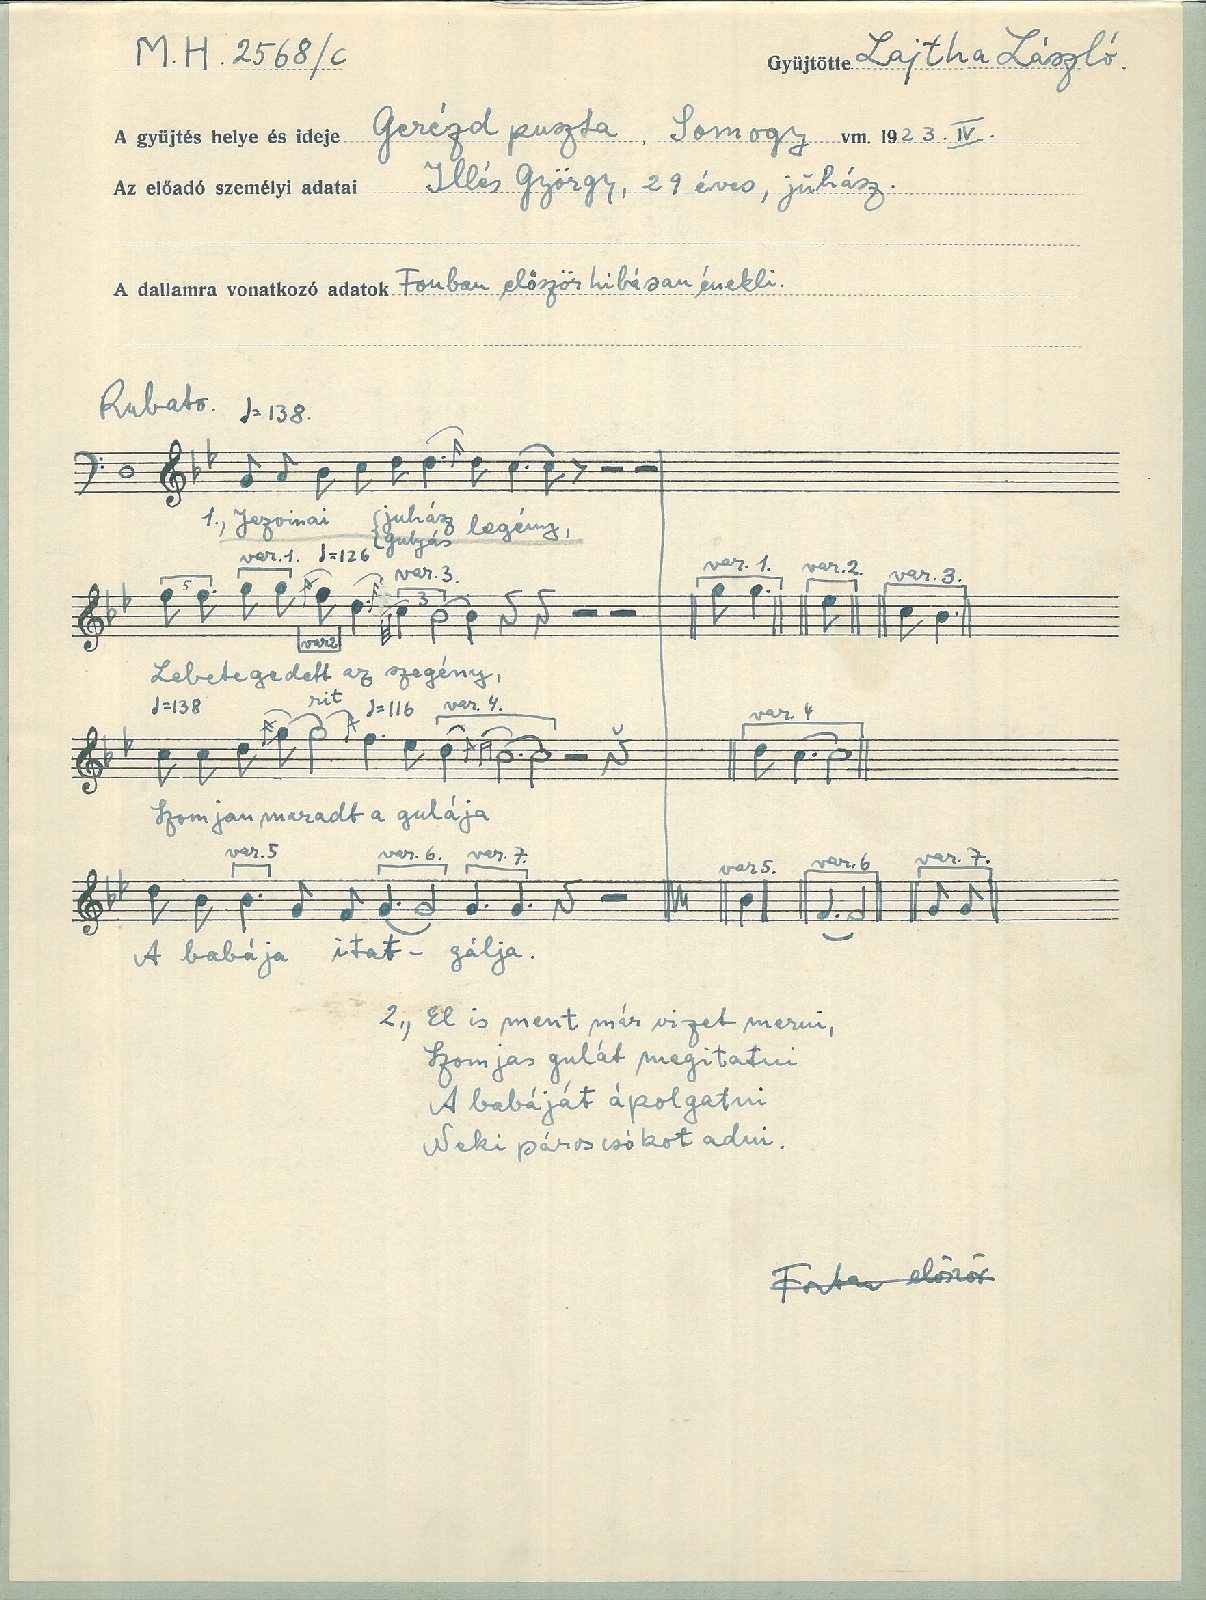 M.H. 2568/c
Gyüjtötte Lajtha László.
A gyüjtés helye és ideje Gerézd puszta, Somogy vm. 1923. IV.
Az előadó személyi adatai Illés György, 29 éves, juhász.
A dallamra vonatkozó adatok Fonban először hibásan énekli.
Rubato. ♩=138.
1., juhász
gulyás legény,
var. 1. ♩=126 var. 3. var. 1. var. 2. var. 3.
5 3
var 2
Lebetegedett az szegény,
♩=138 rit ♩=116 var. 4. var. 4
Szomjan maradt a gulája
var. 5 var. 6. var. 7. var 5. var. 6 var. 7.
A babája itat- gálja.
2., El is ment már vizet merni,
Szomjas gulát megitatni
A babáját ápolgatni
Neki páros csókot adni.
Fonban először